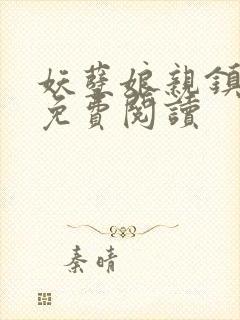 妖孽娘親鎮
免費閱讀
秦晴